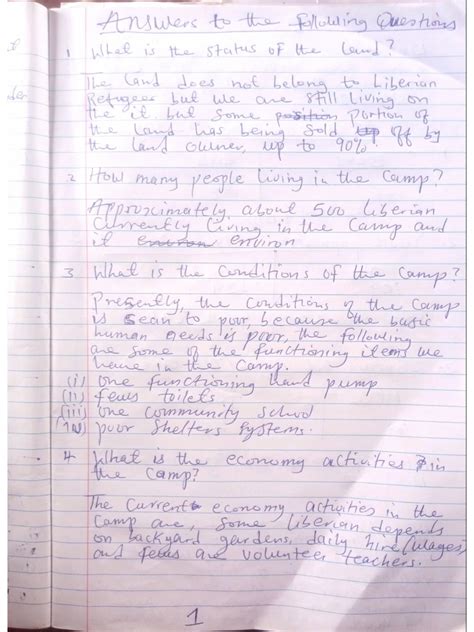 Answers to the following Questions
1 What is the status of the land?
The land does not belong to Liberian
Refugees but we are still living on
the it but some position portion of
the land has being sold up off by
the land owner, up to 90%
2. How many people living in the camp?
Approximately about 500 Liberian
currently living in the camp and
it environ environ
3. What is the conditions of the camp?
Presently, the conditions of the camp
is sean to poor, because the basic
human needs is poor, the following
are some of the functioning items we
have in the camp.
(i) one functioning hand pump
(ii) fews toilets
(iii) one community school
(iv) poor shelters systems.
4. What is the economy activities in
the camp?
The current economy activities in the
camp are, some Liberian depends
on backyard gardens, daily hire (wages)
and fews are volunteer teachers.
1